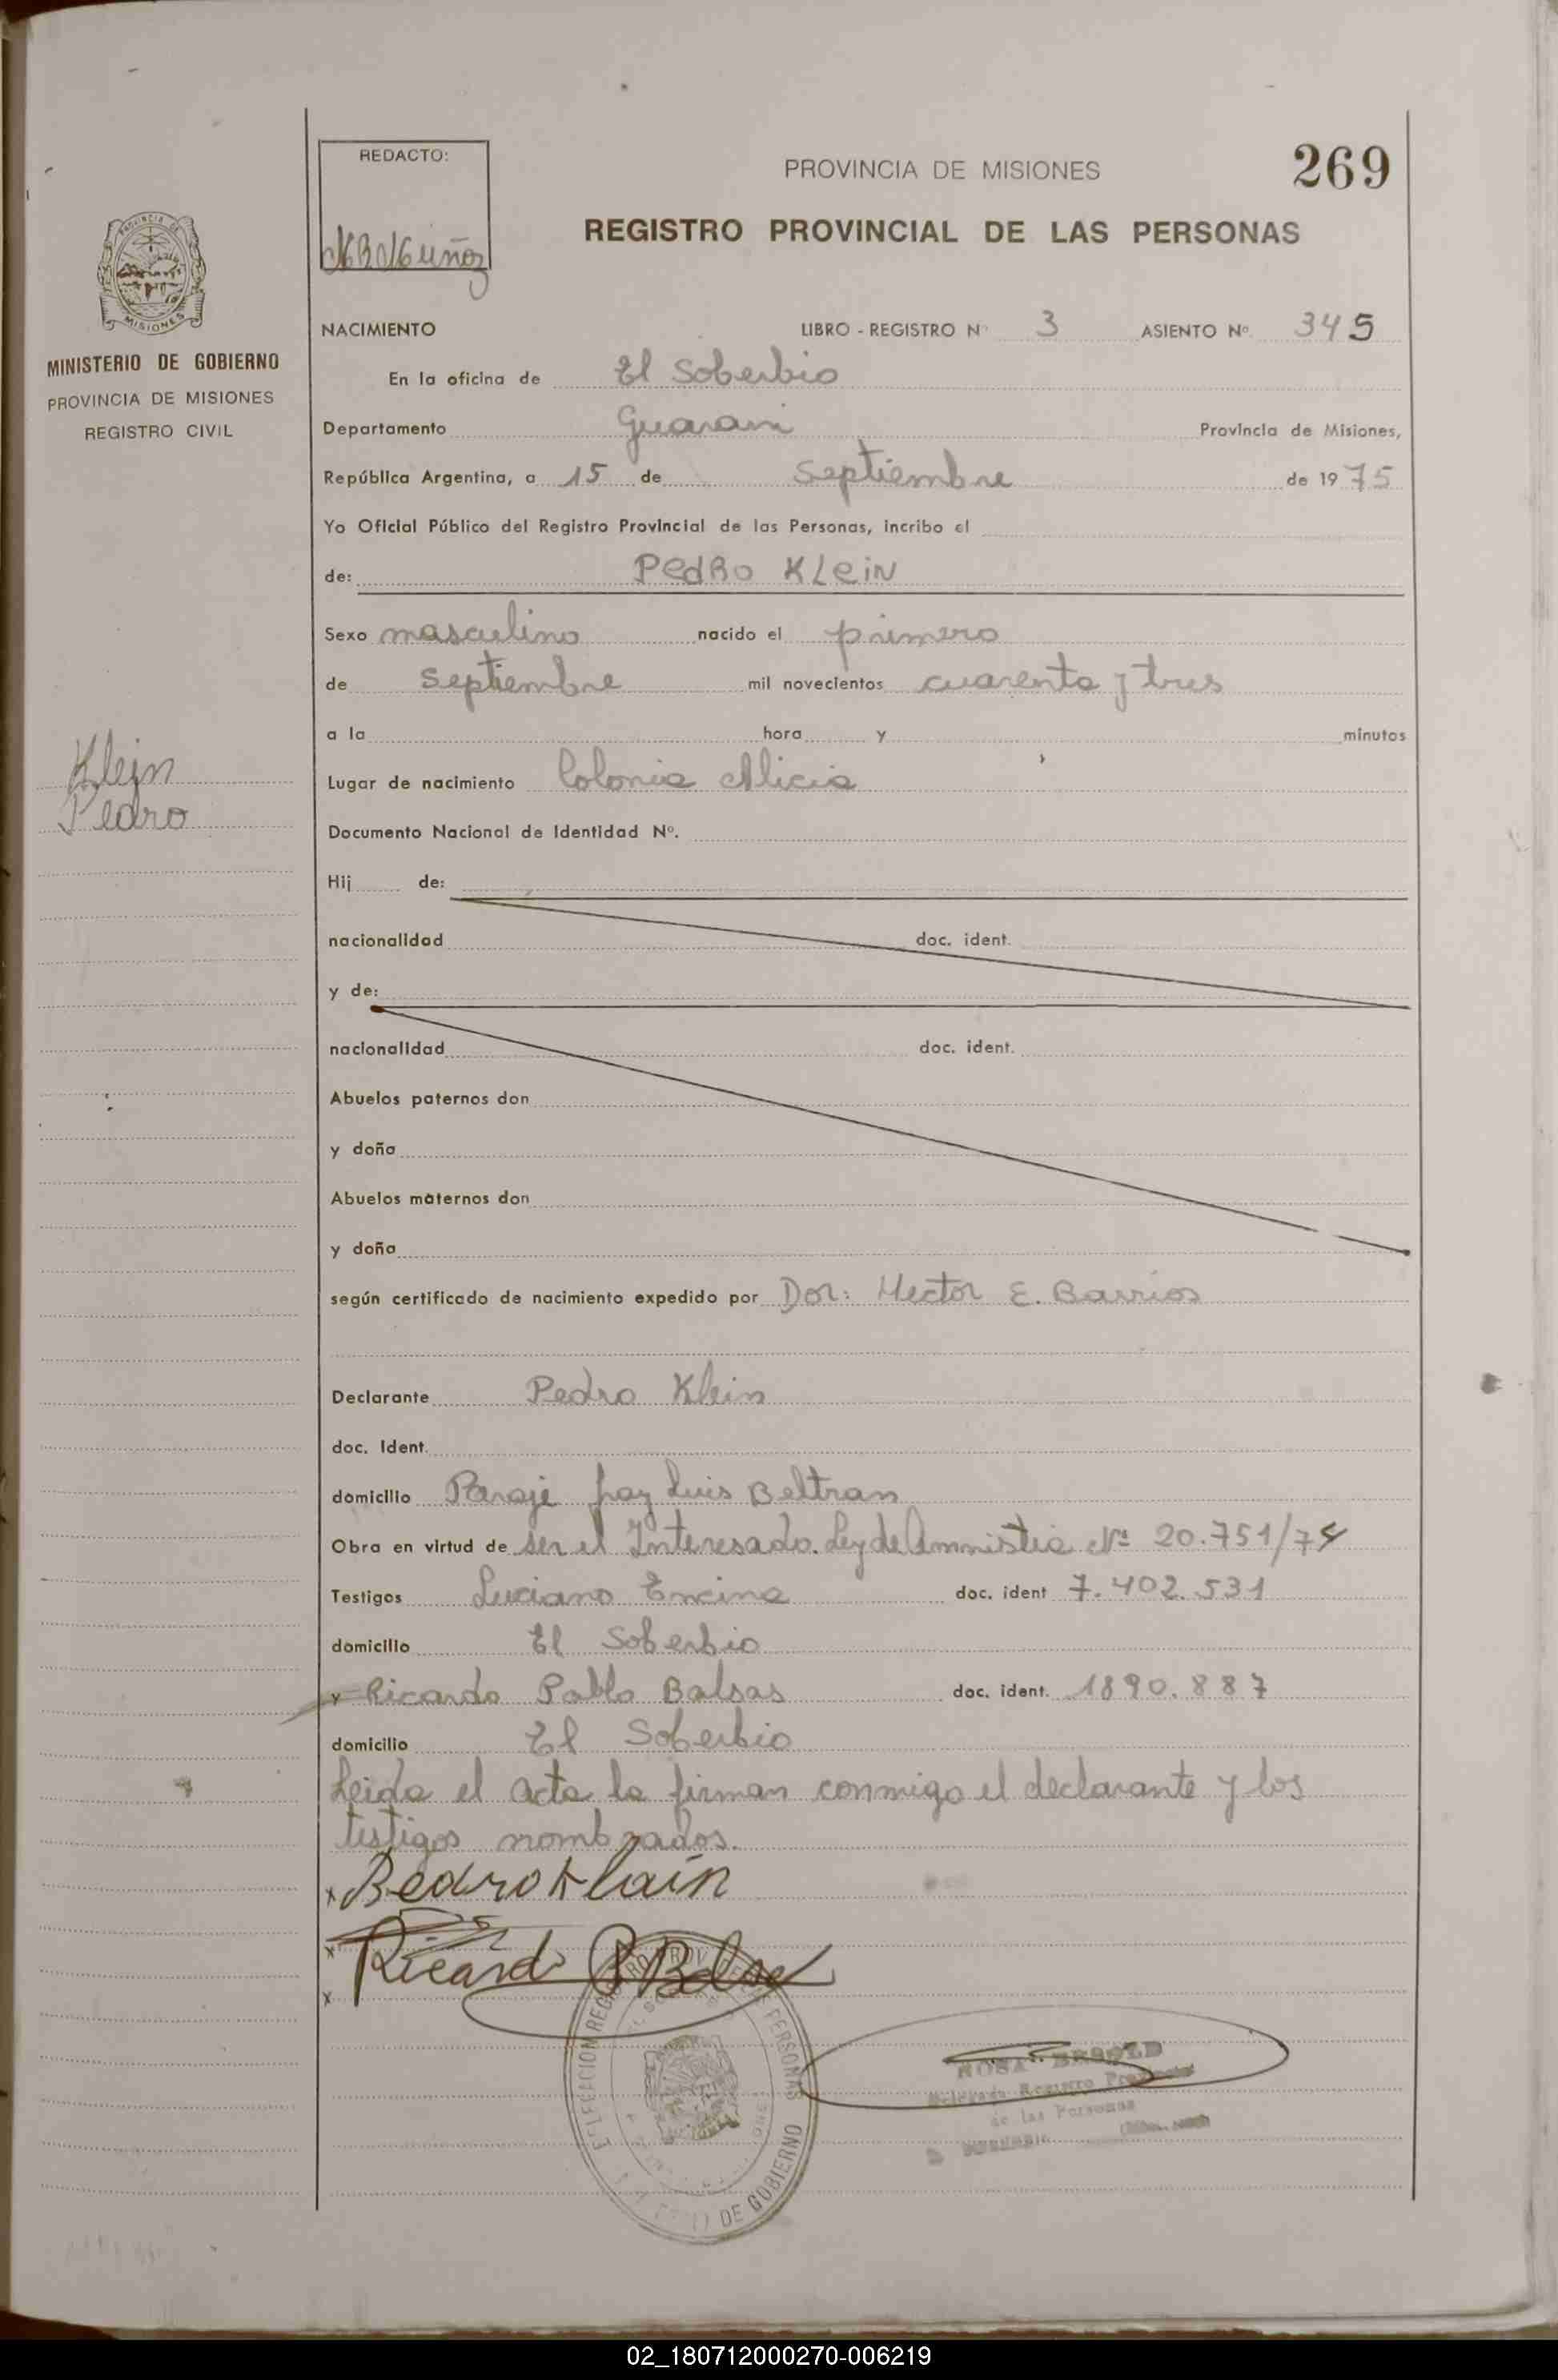 REDACTO:
PROVINCIA DE MISIONES
269
REGISTRO PROVINCIAL DE LAS PERSONAS
PROVINCIA DE
MISIONES
MINISTERIO DE GOBIERNO
PROVINCIA DE MISIONES
REGISTRO CIVIL
NACIMIENTO LIBRO - REGISTRO Nº 3 ASIENTO Nº 345
En la oficina de El Soberbio
Departamento Guarani Provincia de Misiones,
República Argentina, a 15 de Septiembre de 1975
Yo Oficial Público del Registro Provincial de las Personas, incribo el
de: Pedro Klein
Sexo masculino nacido el primero
de Septiembre mil novecientos cuarenta y tres
a la hora y minutos
Klein
Pedro
Lugar de nacimiento Colonia Alicia
Documento Nacional de Identidad Nº.
Hij de:
nacionalidad doc. ident.
y de:
nacionalidad doc. ident.
Abuelos paternos don
y doña
Abuelos maternos don
y doña
según certificado de nacimiento expedido por Dor: Hector E. Barrios
Declarante Pedro Klein
doc. Ident.
domicilio Paraje fray Luis Beltran
Obra en virtud de ser el Interesado. Ley de Amnistia Nº 20.751/74
Testigos Luciano Encina doc. ident 7.402.531
domicilio El Soberbio
y Ricardo Pablo Balsas doc. ident. 1890.887
domicilio El Soberbio
Leida el acta la firman conmigo el declarante y los
testigos nombrados.
x Bedro Klain
x Ricardo P Balsa
x
DELEGACION REGISTRO PROV. DE LAS PERSONAS
DE GOBIERNO
ROSA
Delegada Registro Provincial
de las Personas
02_180712000270-006219